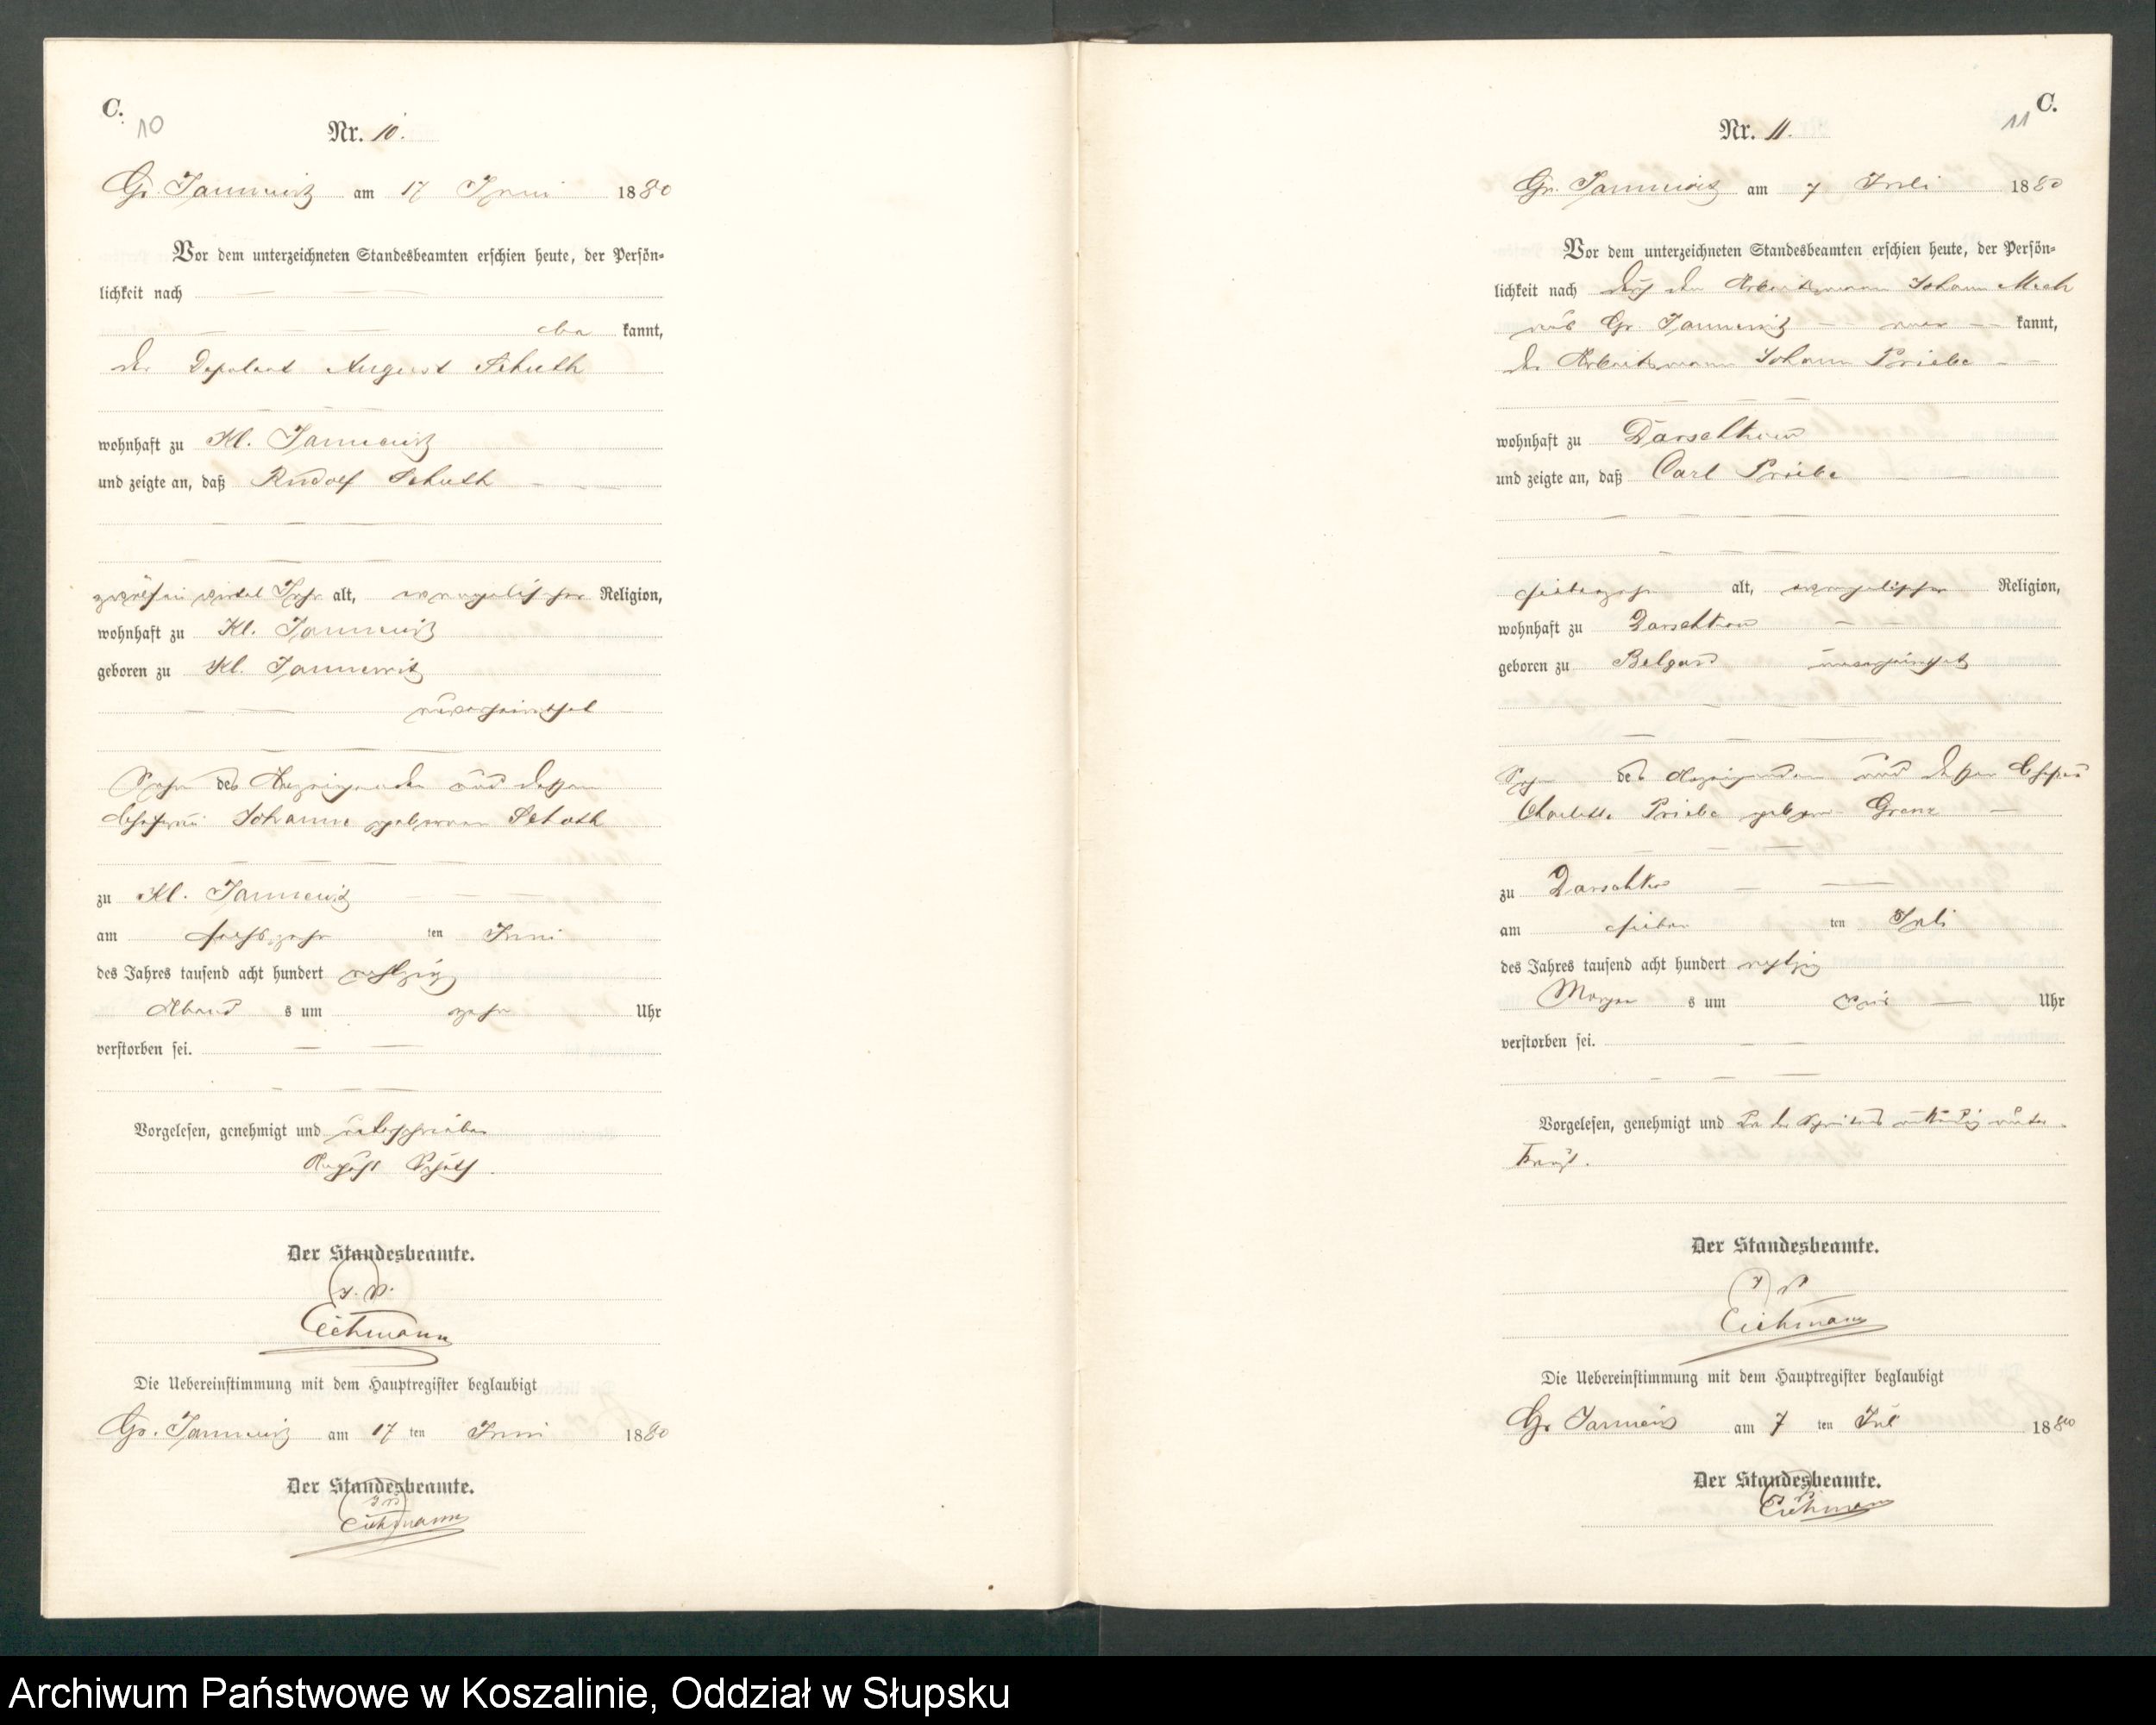 C.
10
Nr. 10.
Gr. Jannewitz am 17 Juni 1880
Vor dem unterzeichneten Standesbeamten erschien heute, der Persön-
lichkeit nach
be kannt,
der Deputant August Schuth
wohnhaft zu Kl. Jannewitz
und zeigte an, daß Rudolf Schuth
Jahr alt, evangelischer Religion,
wohnhaft zu Kl. Jannewitz
geboren zu Kl. Jannewitz
unverheirathet
Sohn des Anzeigenden und dessen
Ehefrau Johanne geborenen Schuth
zu Kl. Jannewitz
am sechszehn ten Juni
des Jahres tausend acht hundert achtzig
Abend s um zehn Uhr
verstorben sei.
Vorgelesen, genehmigt und unterschrieben
August Schuth.
Der Standesbeamte.
J. V.
Eichmann
Die Uebereinstimmung mit dem Hauptregister beglaubigt
Gr. Jannewitz am 17 ten Juni 1880
Der Standesbeamte.
J V
Eichmann
C.
11
Nr. 11.
Gr. Jannewitz am 7 Juli 1880
Vor dem unterzeichneten Standesbeamten erschien heute, der Persön-
lichkeit nach durch den Arbeitsmann Johann
aus Gr. Jannewitz aner kannt,
der Arbeitsmann Johann Priebe
wohnhaft zu Darschkow
und zeigte an, daß Carl Priebe
siebenzehn alt, evangelischer Religion,
wohnhaft zu Darschkow
geboren zu Belgard unverheirathet
Sohn des Anzeigenden und dessen Ehefrau
Charlotte Priebe geboren
zu Darschkow
am sieben ten Juli
des Jahres tausend acht hundert achtzig
Morgen s um Uhr
verstorben sei.
Vorgelesen, genehmigt und da des Schreibens unkundig unter-
kreuzt.
Der Standesbeamte.
J V
Eichmann
Die Uebereinstimmung mit dem Hauptregister beglaubigt
Gr Jannewitz am 7 ten Juli 1880
Der Standesbeamte.
Eichmann
Archiwum Państwowe w Koszalinie, Oddział w Słupsku